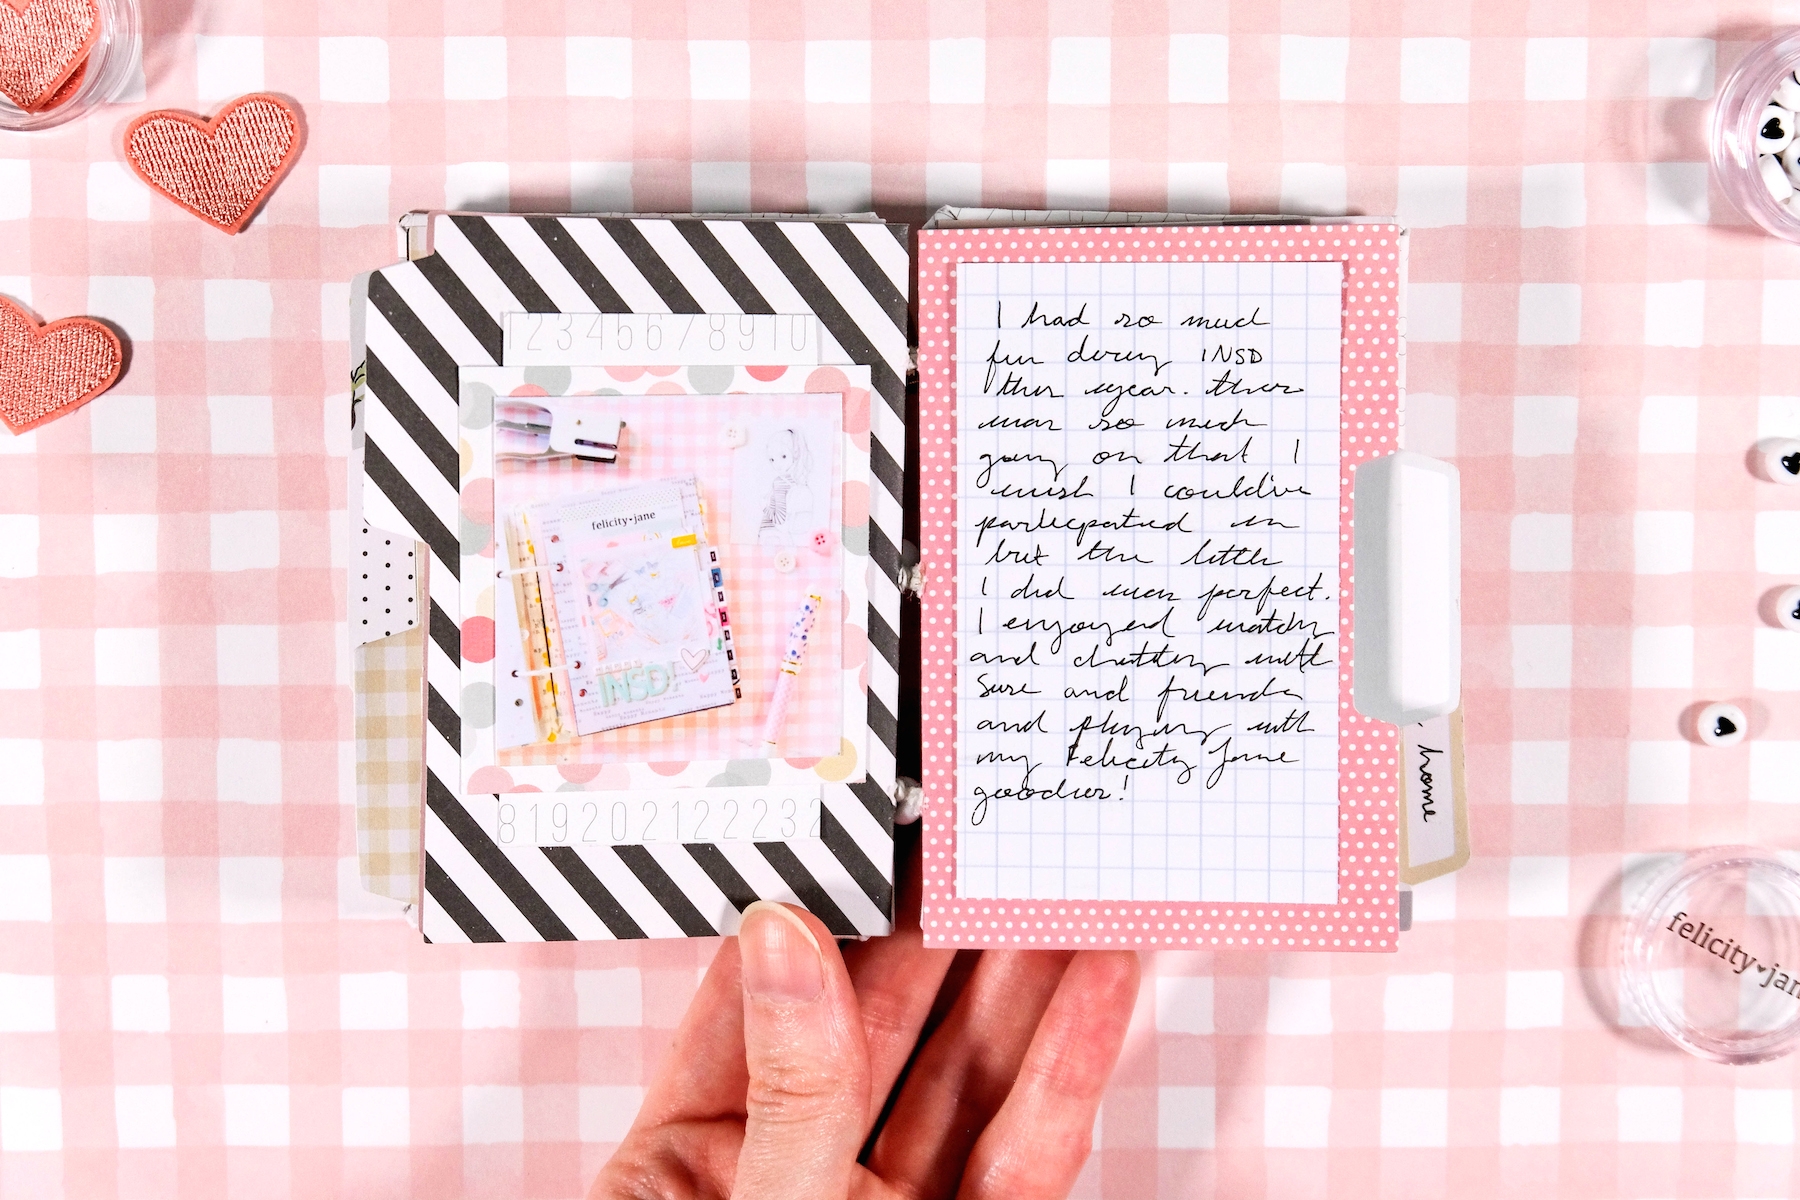 12345678910
felicity♥jane
INSD
819202122232
I had so much
fun during INSD
this year. there
was so much
going on that I
wish I could've
participated in
but the little
I did was perfect.
I enjoyed watching
and chatting with
Sure and friends
and playing with
my Felicity Jane
goodies!
home
felicity♥jan